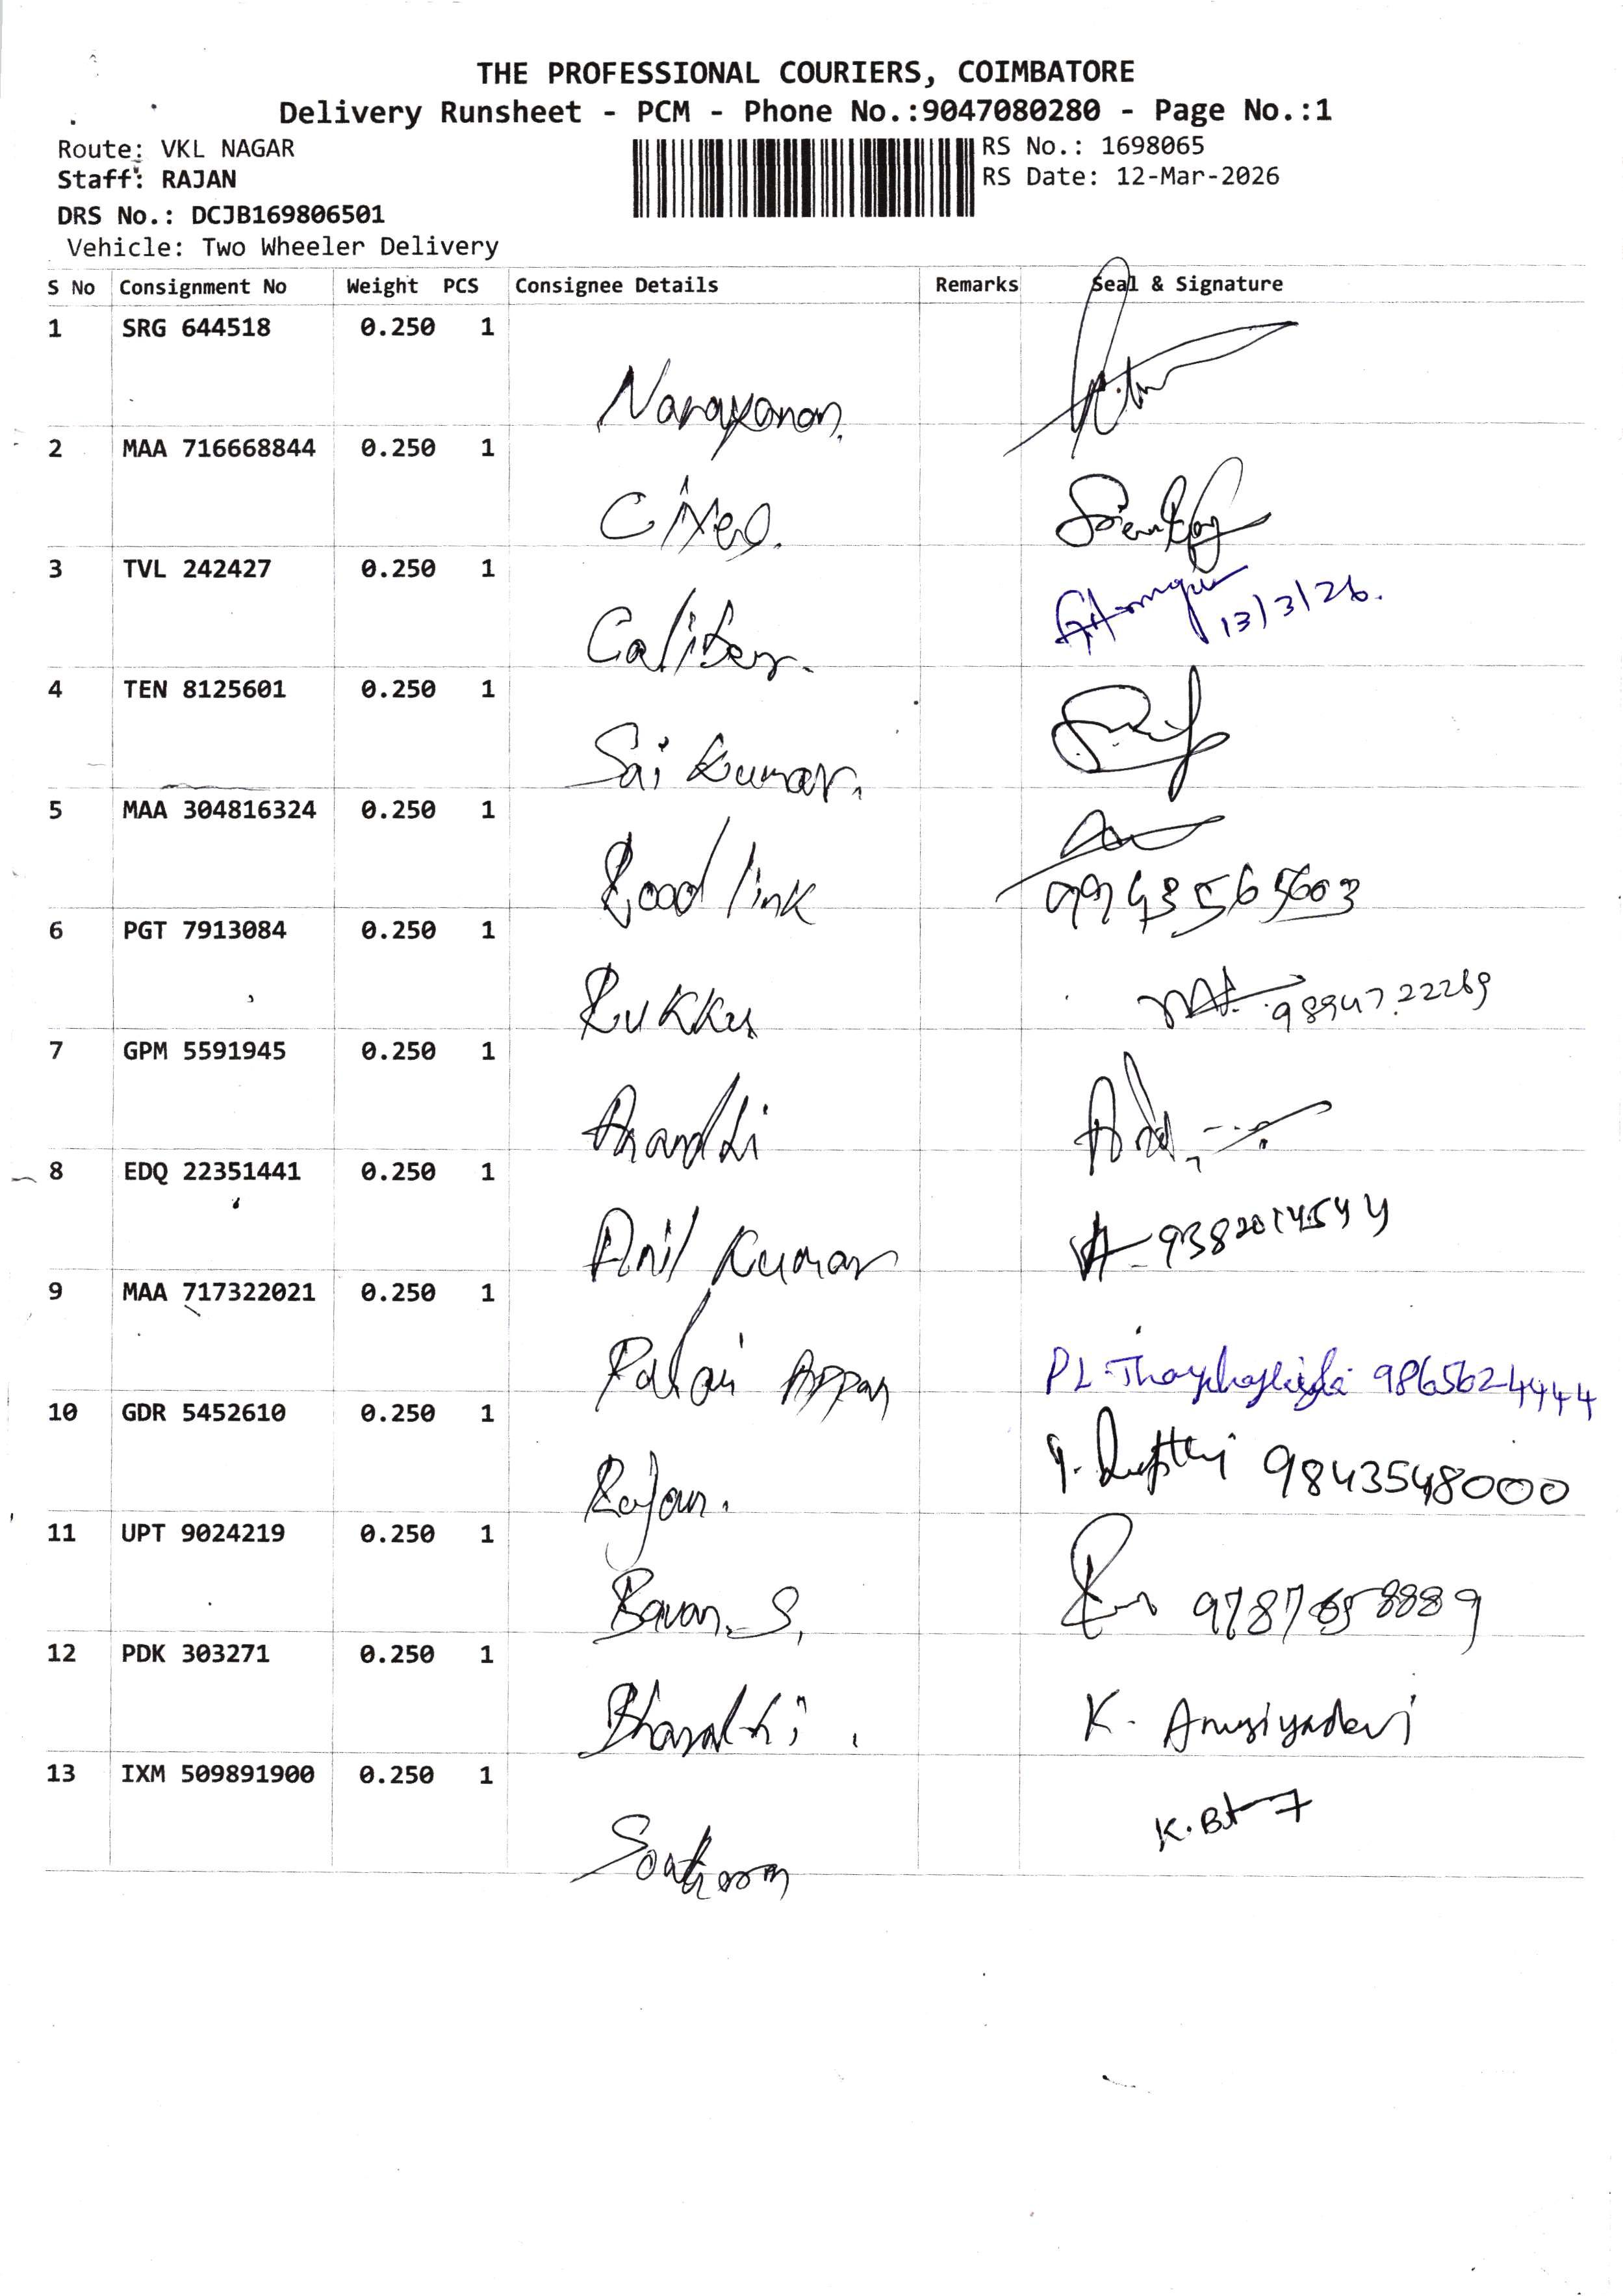 THE PROFESSIONAL COURIERS, COIMBATORE
Delivery Runsheet - PCM - Phone No.:9047080280 - Page No.:1
Route: VKL NAGAR
RS No.: 1698065
Staff: RAJAN
RS Date: 12-Mar-2026
DRS No.: DCJB169806501
Vehicle: Two Wheeler Delivery
S No Consignment No Weight PCS Consignee Details Remarks Seal & Signature
1 SRG 644518 0.250 1
Narayanan.
2 MAA 716668844 0.250 1
3 TVL 242427 0.250 1
13/3/26.
Caliber.
4 TEN 8125601 0.250 1
Sai Kumar.
5 MAA 304816324 0.250 1
Road link
6 PGT 7913084 0.250 1
Rukku 9894722269
7 GPM 5591945 0.250 1
Anandhi
8 EDQ 22351441 0.250 1
Anil Kumar
9 MAA 717322021 0.250 1
Palani Appan PL 9865624444
10 GDR 5452610 0.250 1
9843548000
Rajan.
11 UPT 9024219 0.250 1
Bavan. S. 9787658889
12 PDK 303271 0.250 1
Bharathi. K. Anusiyadevi
13 IXM 509891900 0.250 1